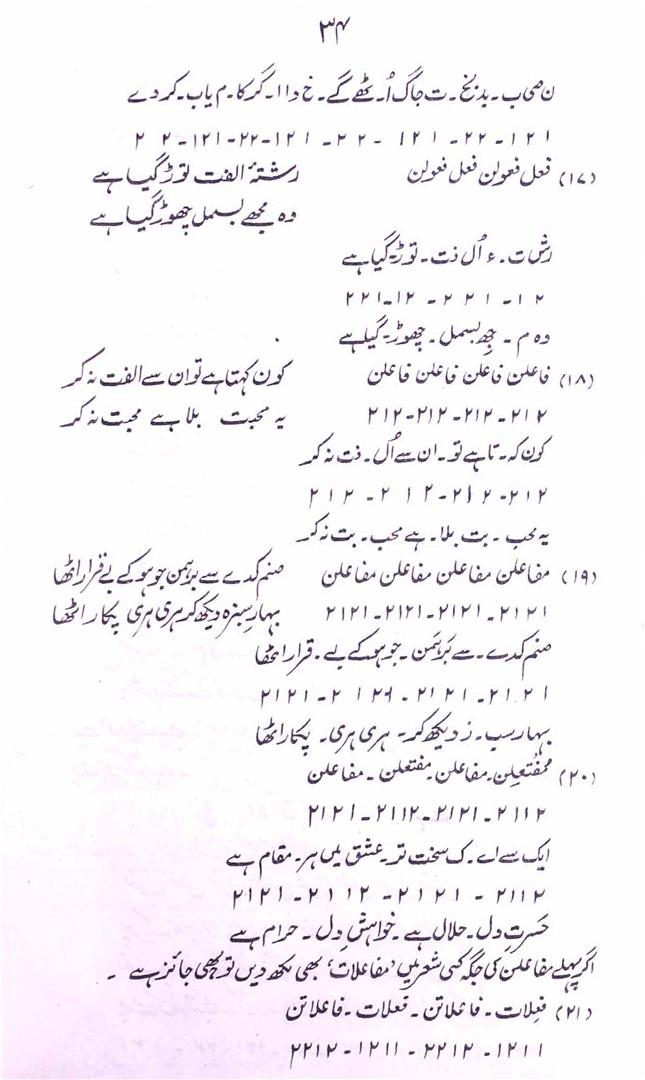 ۳۴
ن صی ب ۔ بد بخ ۔ ت جاگ اُ ۔ ٹھے گے ۔ خ دا ا ۔ گر کا ۔ م یاب ۔ کر دے
۱ ۲ ۱ ۔ ۲۲ ۔ ۱ ۲۱ ۔ ۲ ۲ ۔ ۱ ۱۲۱ ۔ ۲۲ ۔ ۱۲۱ ۔ ۲ ۲
(۱۷) فعل فعولن فعل فعولن رشتۂ الفت توڑ گیا ہے
وہ مجھے بسمل چھوڑ گیا ہے
رش ت ۔ ء اُل فت ۔ توڑ ۔ گیا ہے
۱ ۲ ۔ ۱ ۲ ۲ ۔ ۱۲ ۔ ۲۲۱
وہ م ۔ جھِ بسمل ۔ چھوڑ ۔ گیا ہے
(۱۸) فاعلن فاعلن فاعلن فاعلن کون کہتا ہے تو ان سے الفت نہ کر
۲۱۲ ۔ ۲۱۲ ۔ ۲۱۲ ۔ ۲۱۲ یہ محبت بلا ہے محبت نہ کر
کون کہ ۔ تا ہے تو ۔ ان سے اُل ۔ فت نہ کر
۲۱۲ ۔ ۲۱۲ ۔ ۲ ۱ ۲ ۔ ۲ ۱ ۲
یہ محب ۔ بت بلا ۔ ہے محب ۔ بت نہ کر
(۱۹) مفاعلن مفاعلن مفاعلن مفاعلن صنم کدے سے برہمن جو ہو کے بے قرار اٹھا
۲۱۲۱ ۔ ۲۱۲۱ ۔ ۲۱۲۱ ۔ ۲۱۲۱ بہارِ سبزہ دیکھ کر ہری ہری پکار اٹھا
صنم کدے ۔ سے بَرَہمَن ۔ جو ہو کے بے ۔ قرار اٹھا
۲۱۲۱ ۔ ۲۱۲۱ ۔ ۲۱۲۱ ۔ ۲۱۲۱
بہارِ سب ۔ ز دیکھ کر ۔ ہری ہری ۔ پکار اٹھا
(۲۰) مُفتَعِلن ۔ مفاعلن ۔ مفتعلن ۔ مفاعلن
۲۱۱۲ ۔ ۲۱۲۱ ۔ ۲۱۱۲ ۔ ۲۱۲۱
ایک سے اے ۔ ک سخت تر ۔ عشق میں ہر ۔ مقام ہے
۲۱۱۲ ۔ ۲۱۲۱ ۔ ۲۱۱۲ ۔ ۲۱۲۱
حَسرتِ دل ۔ حلال ہے ۔ خواہشِ دل ۔ حرام ہے
اگر پہلے مفاعلن کی جگہ کسی شعر میں ’مفاعلات‘ بھی رکھ دیں تو بھی جائز ہے ۔
(۲۱) فعِلات ۔ فاعلاتن ۔ فعلات ۔ فاعلاتن
۱۲۱۱ ۔ ۲۲۱۲ ۔ ۱۲۱۱ ۔ ۲۲۱۲